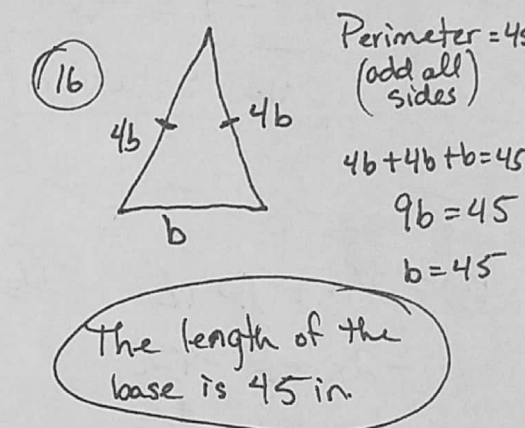 16
Perimeter = 45
(add all
sides)
4b
4b
b
4b+4b+b=45
9b=45
b=45
The length of the
base is 45 in.